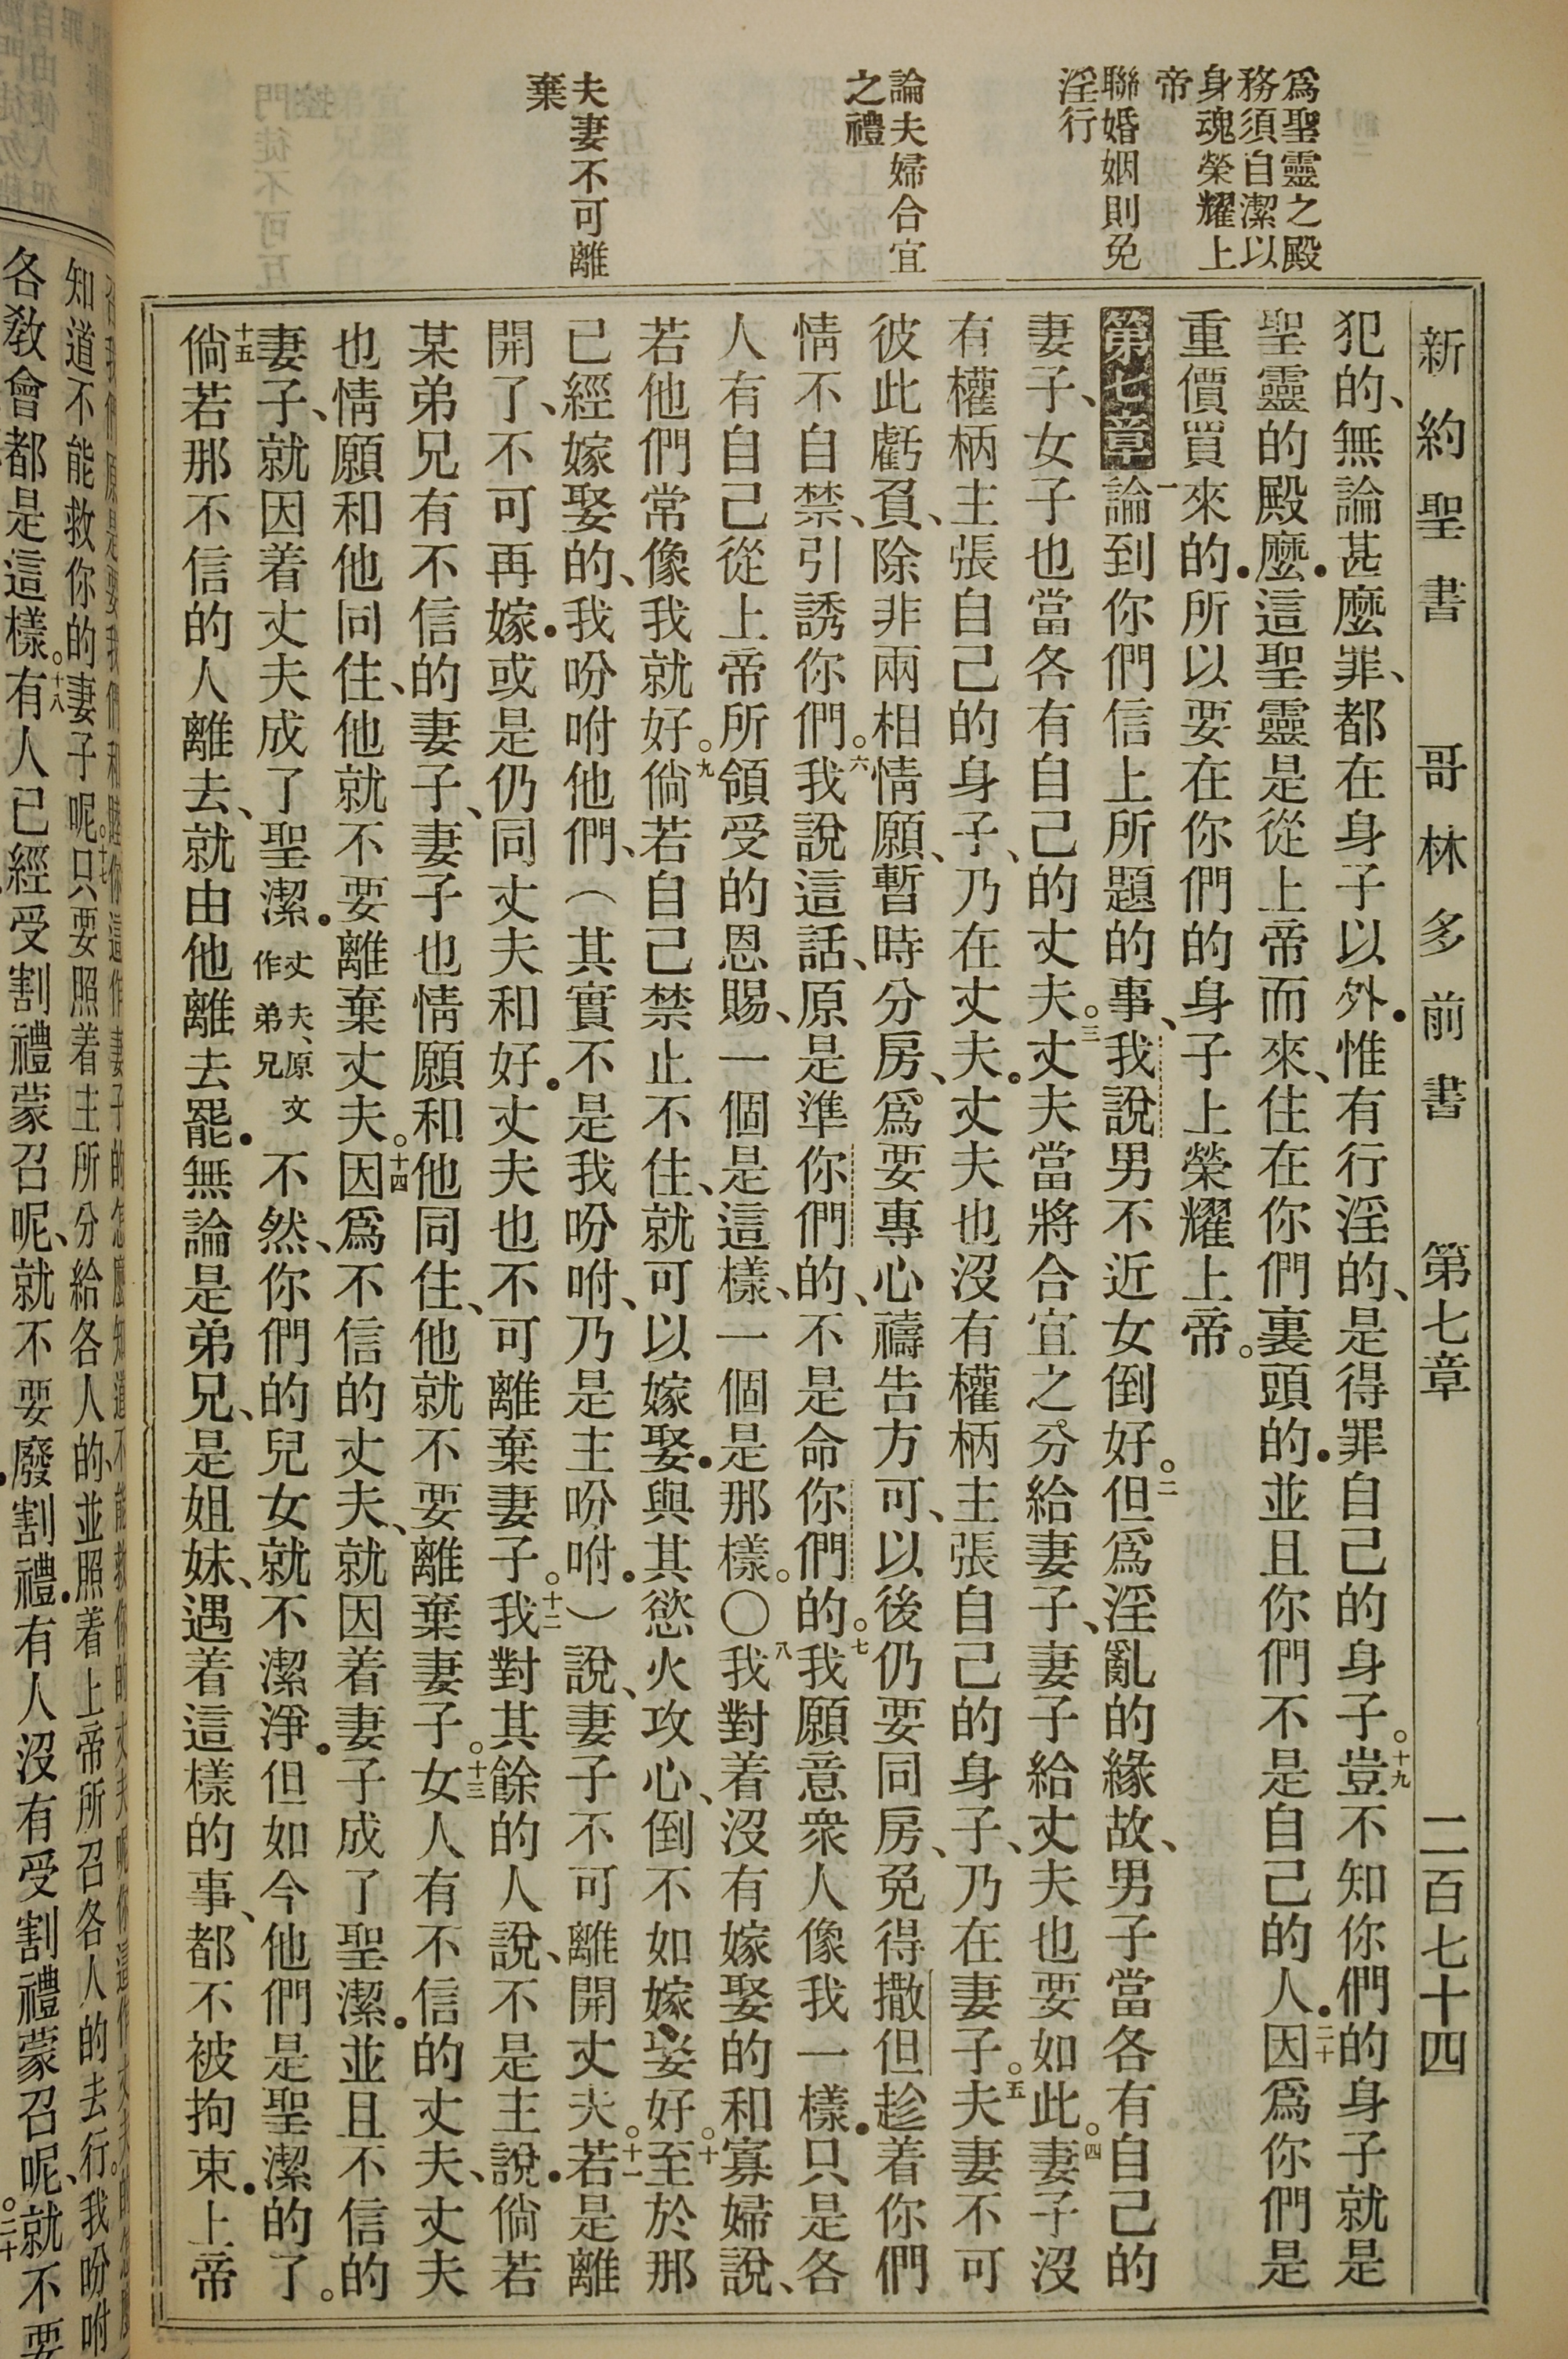 新約聖書 哥林多前書 第七章 二百七十四
爲聖靈之殿
務須自潔以
身魂榮耀上
帝
聯婚姻則免
淫行
論夫婦合宜
之禮
夫妻不可離
棄
犯的、無論甚麼罪、都在身子以外．惟有行淫的、是得罪自己的身子。十九豈不知你們的身子就是
聖靈的殿麼．這聖靈是從上帝而來、住在你們裏頭的．並且你們不是自己的人．二十因爲你們是
重價買來的．所以要在你們的身子上榮耀上帝。
第七章 一論到你們信上所題的事、我說男不近女倒好。二但爲淫亂的緣故、男子當各有自己的
妻子、女子也當各有自己的丈夫。三丈夫當將合宜之分給妻子、妻子給丈夫也要如此。四妻子沒
有權柄主張自己的身子、乃在丈夫．丈夫也沒有權柄主張自己的身子、乃在妻子。五夫妻不可
彼此虧負、除非兩相情願、暫時分房、爲要專心禱告方可、以後仍要同房、免得撒但趁着你們
情不自禁、引誘你們。六我說這話、原是準你們的、不是命你們的。七我願意衆人像我一樣．只是各
人有自己從上帝所領受的恩賜、一個是這樣、一個是那樣。〇八我對着沒有嫁娶的和寡婦說、
若他們常像我就好。九倘若自己禁止不住、就可以嫁娶．與其慾火攻心、倒不如嫁娶好。十至於那
已經嫁娶的、我吩咐他們、（其實不是我吩咐、乃是主吩咐．）說、妻子不可離開丈夫。十一若是離
開了、不可再嫁．或是仍同丈夫和好．丈夫也不可離棄妻子。十二我對其餘的人說、不是主說．倘若
某弟兄有不信的妻子、妻子也情願和他同住、他就不要離棄妻子。十三女人有不信的丈夫、丈夫
也情願和他同住、他就不要離棄丈夫。十四因爲不信的丈夫、就因着妻子成了聖潔．並且不信的
妻子、就因着丈夫成了聖潔．丈夫、原文作弟兄 不然、你們的兒女就不潔淨．但如今他們是聖潔的了。
十五倘若那不信的人離去、就由他離去罷．無論是弟兄、是姐妹、遇着這樣的事、都不被拘束．上帝
召我們原是要我們和睦
你這作妻子的怎麼知道不能救你的丈夫呢
知道不能救你的妻子呢。十七只要照着主所分給各人的、並照着上帝所召各人的去行、我吩咐
各教會都是這樣。十八有人已經受割禮蒙召呢、就不要廢割禮．有人沒有受割禮蒙召呢、就不要